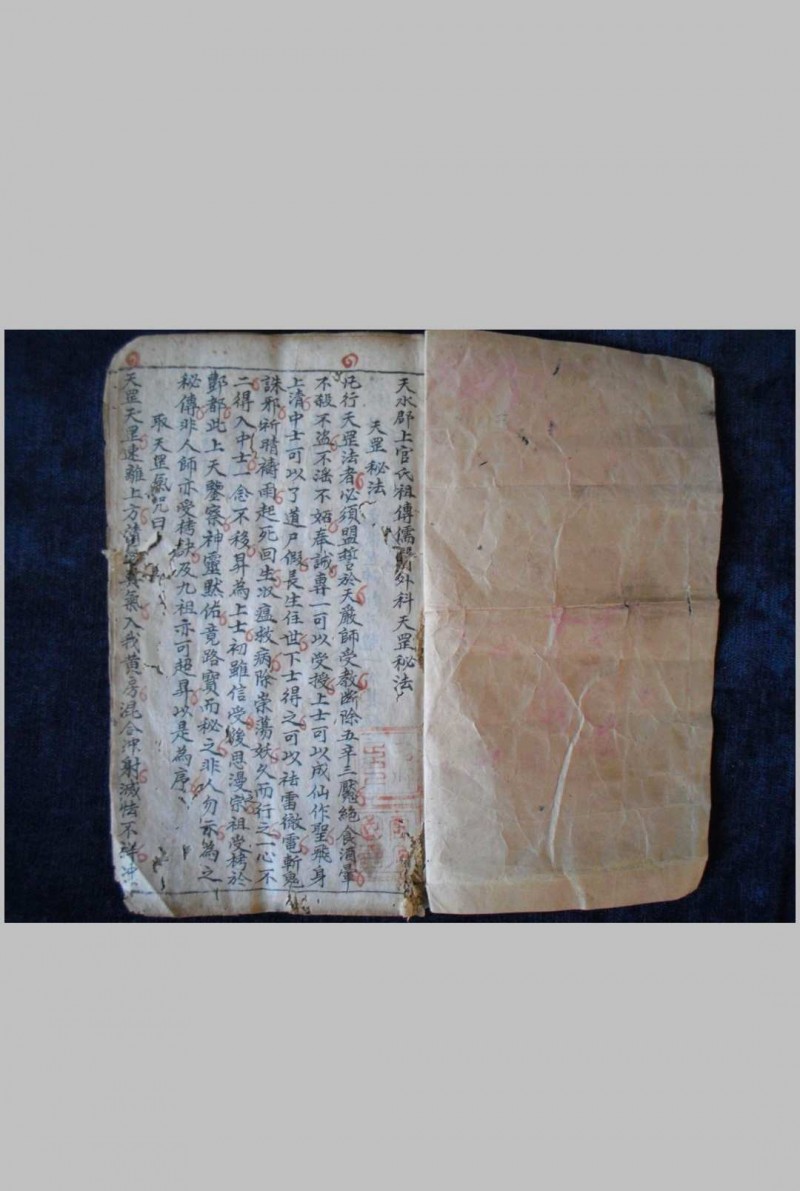 天水郡上官氏祖傳儒醫外科天罡秘法
天罡秘法
凡行天罡法者必須盟誓於天嚴師受教断除五辛三厭絕食酒葷
不殺不盗不淫不妬奉誠專一可以受授上士可以成仙作聖飛身
上清中士可以了道尸假長生住世下士得之可以祛雷徹電斬鬼
誅邪祈晴禱雨起死回生収瘟救病除祟蕩妖久而行之一心不
二得入中士一念不移昇為上士初雖信受後思漫宗祖受拷於
酆都此上天鑒察神靈默佑竟路寶而秘之非人勿示為之
秘傳非人師亦受拷缺及九祖亦可超昇以是為序
取天罡氣咒曰
天罡天罡速離上方 真氣入我黄房混合冲射滅怯不祥冲